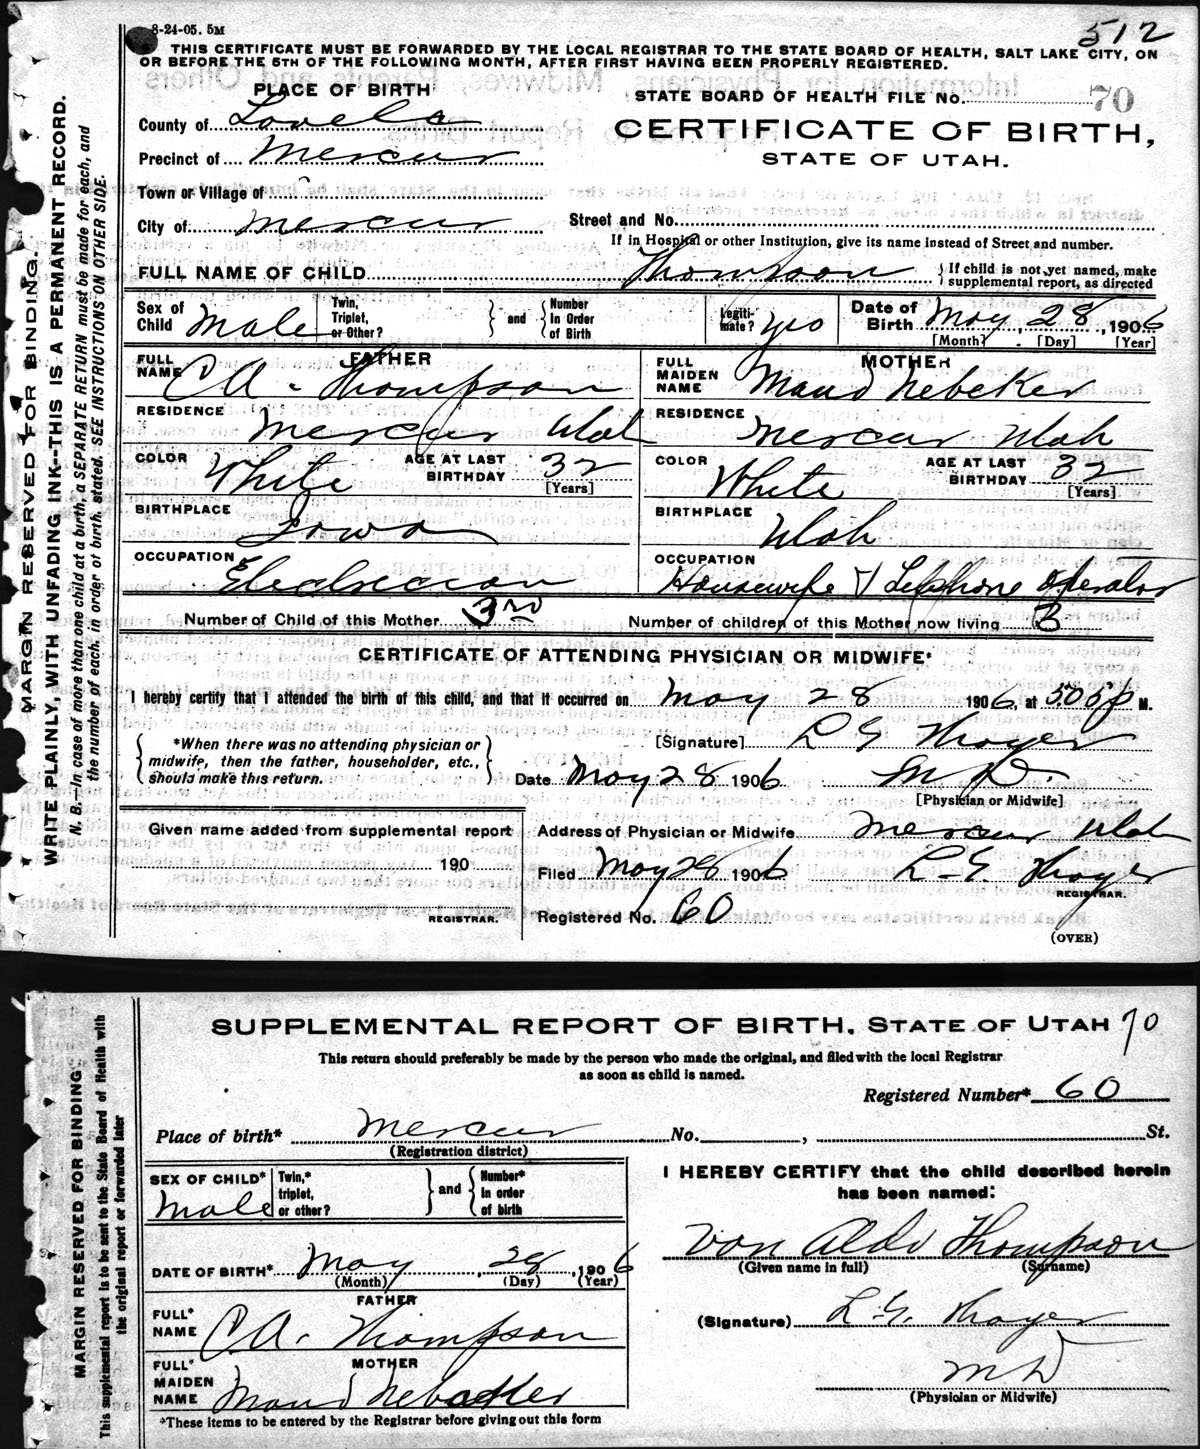 8-24-05. 5M
512
THIS CERTIFICATE MUST BE FORWARDED BY THE LOCAL REGISTRAR TO THE STATE BOARD OF HEALTH, SALT LAKE CITY, ON
OR BEFORE THE 5TH OF THE FOLLOWING MONTH, AFTER FIRST HAVING BEEN PROPERLY REGISTERED.
MARGIN RESERVED FOR BINDING.
WRITE PLAINLY, WITH UNFADING INK--THIS IS A PERMANENT RECORD.
N. B.--In case of more than one child at a birth, a SEPARATE RETURN must be made for each, and
the number of each, in order of birth, stated. SEE INSTRUCTIONS ON OTHER SIDE.
PLACE OF BIRTH
STATE BOARD OF HEALTH FILE No. 70
County of
CERTIFICATE OF BIRTH,
Precinct of Mercur
STATE OF UTAH.
Town or Village of
City of Mercur Street and No.
If in Hospital or other Institution, give its name instead of Street and number.
FULL NAME OF CHILD Thompson { If child is not yet named, make
supplemental report, as directed
Sex of Child Male Twin, Triplet, or Other? } and { Number in Order of Birth Legiti-mate? yes Date of Birth May, 28, 1906
[Month] [Day] [Year]
FATHER MOTHER
FULL NAME C A. Thompson FULL MAIDEN NAME Maud Nebeker
RESIDENCE Mercur Utah RESIDENCE Mercur Utah
COLOR White AGE AT LAST BIRTHDAY 32 [Years] COLOR White AGE AT LAST BIRTHDAY 32 [Years]
BIRTHPLACE Iowa BIRTHPLACE Utah
OCCUPATION Electrician OCCUPATION Housewife & Telephone Operator
Number of Child of this Mother 3rd Number of children of this Mother now living 3
CERTIFICATE OF ATTENDING PHYSICIAN OR MIDWIFE*
I hereby certify that I attended the birth of this child, and that it occurred on May 28 1906, at 5:05 p M.
{ *When there was no attending physician or midwife, then the father, householder, etc., should make this return. }
[Signature] L G Thayer
Date May 28 1906 M D.
[Physician or Midwife]
Given name added from supplemental report
190
REGISTRAR.
Address of Physician or Midwife Mercur Utah
Filed May 28 1906 L-G Thayer
REGISTRAR.
Registered No. 60
(OVER)
MARGIN RESERVED FOR BINDING
This supplemental report is to be sent to the State Board of Health with
the original report or forwarded later
SUPPLEMENTAL REPORT OF BIRTH, STATE OF UTAH 70
This return should preferably be made by the person who made the original, and filed with the local Registrar
as soon as child is named.
Registered Number* 60
Place of birth* Mercur No. , St.
(Registration district)
SEX OF CHILD* Male Twin,* triplet, or other? } and { Number* in order of birth
I HEREBY CERTIFY that the child described herein
has been named:
Von Aldo Thompson
(Given name in full) (Surname)
DATE OF BIRTH* May, 28, 1906
(Month) (Day) (Year)
FATHER
FULL* NAME C.A. Thompson
(Signature) L.G. Thayer
MOTHER
M D
FULL* MAIDEN NAME Maud Nebeker
(Physician or Midwife)
*These items to be entered by the Registrar before giving out this form